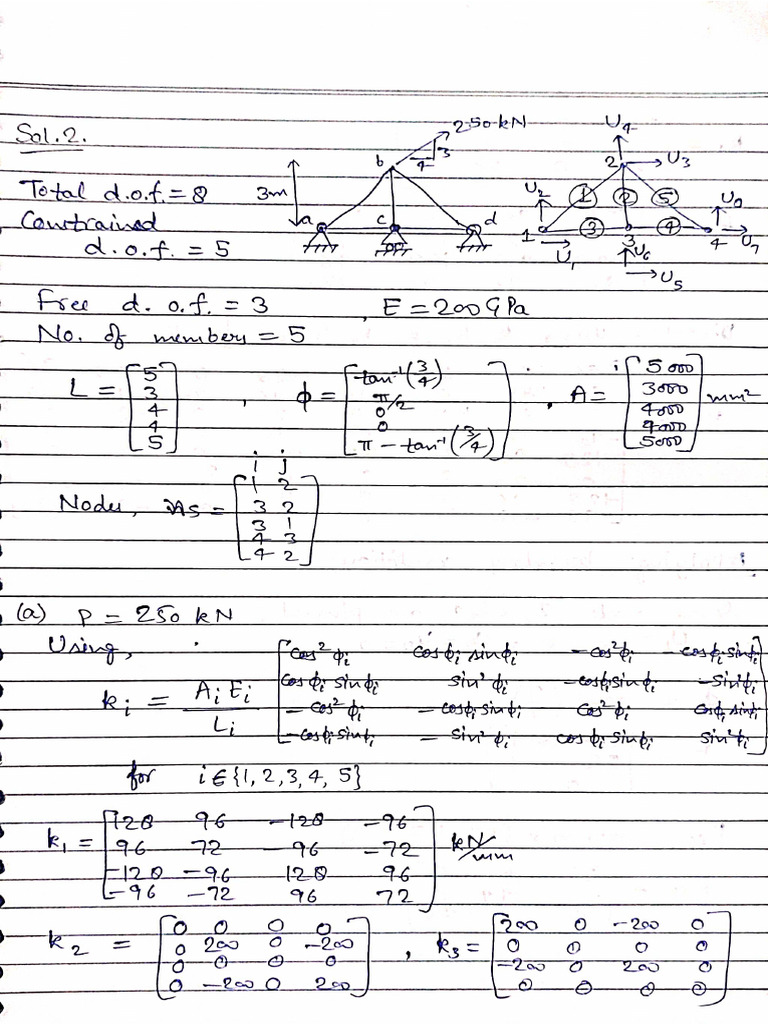 Sol. 2.
250 kN
3
4
b
3m
a
c
d
U4
2
U3
U2
1
2
5
1
3
3
4
4
U8
U7
U1
U6
U5
Total d.o.f. = 8
Constrained
d.o.f. = 5
Free d.o.f. = 3 , E = 200 GPa
No. of members = 5
L = [5 3 4 4 5] , φ = [tan⁻¹(3/4) π/2 0 0 π − tan⁻¹(3/4)] , A = [5000 3000 4000 4000 5000] mm²
i j
Nodes, = [1 2
3 2
3 1
4 3
4 2]
(a) P = 250 kN
Using,
ki = AiEi/Li [cos²φi cosφi sinφi −cos²φi −cosφi sinφi
cosφi sinφi sin²φi −cosφi sinφi −sin²φi
−cos²φi −cosφi sinφi cos²φi cosφi sinφi
−cosφi sinφi −sin²φi cosφi sinφi sin²φi]
for i ∈ {1, 2, 3, 4, 5}
k1 = [128 96 −128 −96
96 72 −96 −72
−128 −96 128 96
−96 −72 96 72] kN/mm
k2 = [0 0 0 0
0 200 0 −200
0 0 0 0
0 −200 0 200] , k3 = [200 0 −200 0
0 0 0 0
−200 0 200 0
0 0 0 0]